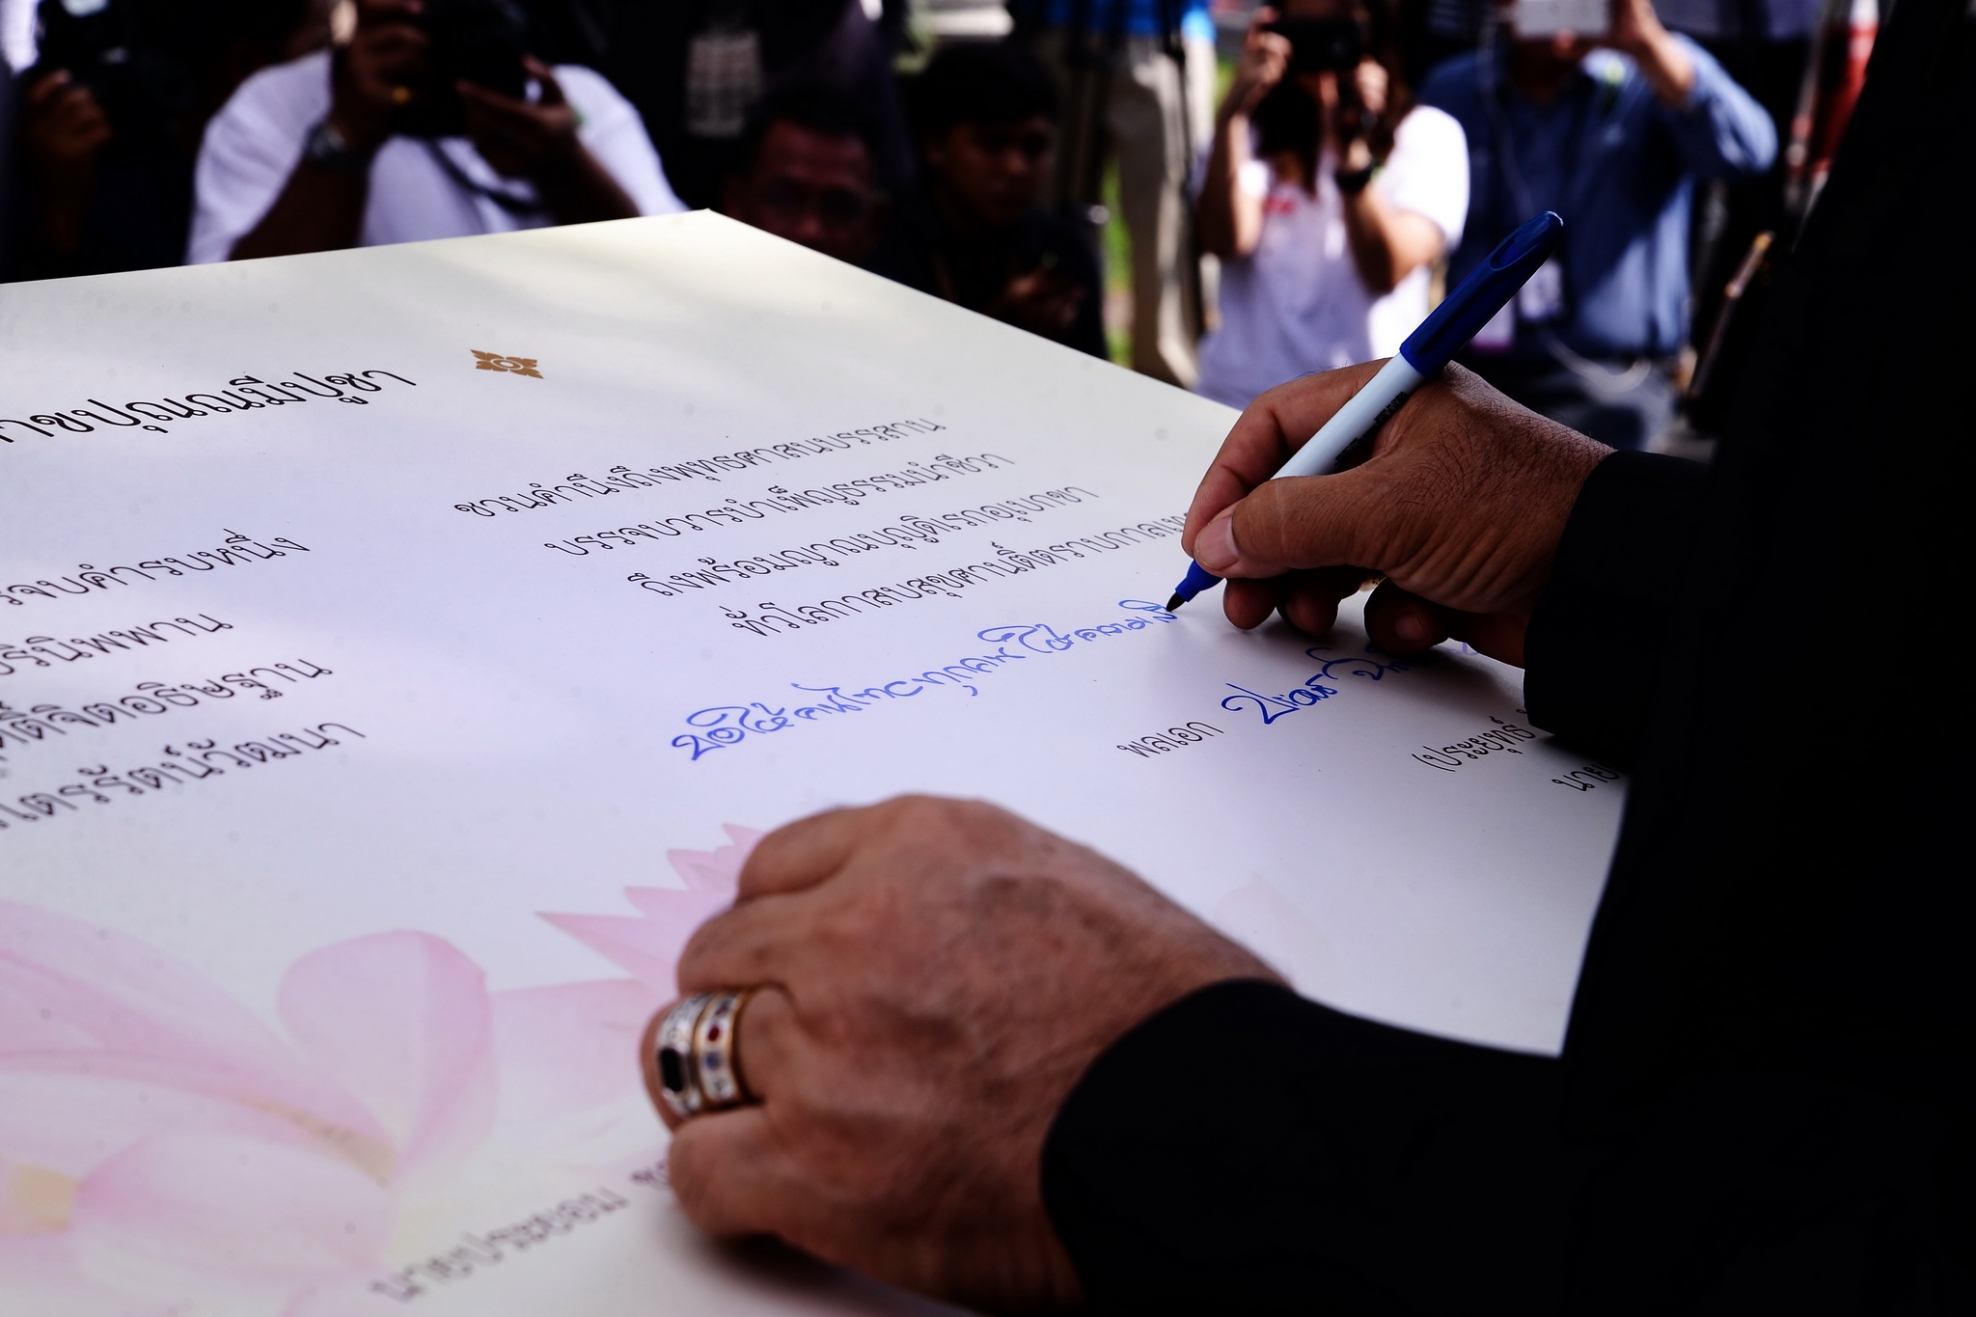 าชปุณณมีปูชา
ชวนคำนึงถึงพุทธศาสนบรรสาน
บรรจบวารบำเพ็ญธรรมนำชีวา
ถึงพร้อมญาณบุญดิเรกอุเบกขา
ทั่วโลกาสบสุขศานติ์ตราบกาลเท
รจบคำรบหนึ่ง
ปรินิพพาน
จิตอธิษฐาน
ไตรรัตน์วัฒนา
ขอให้คนไทยทุกคน
พลเอก
(ประยุทธ์
นาย
นายประยอม